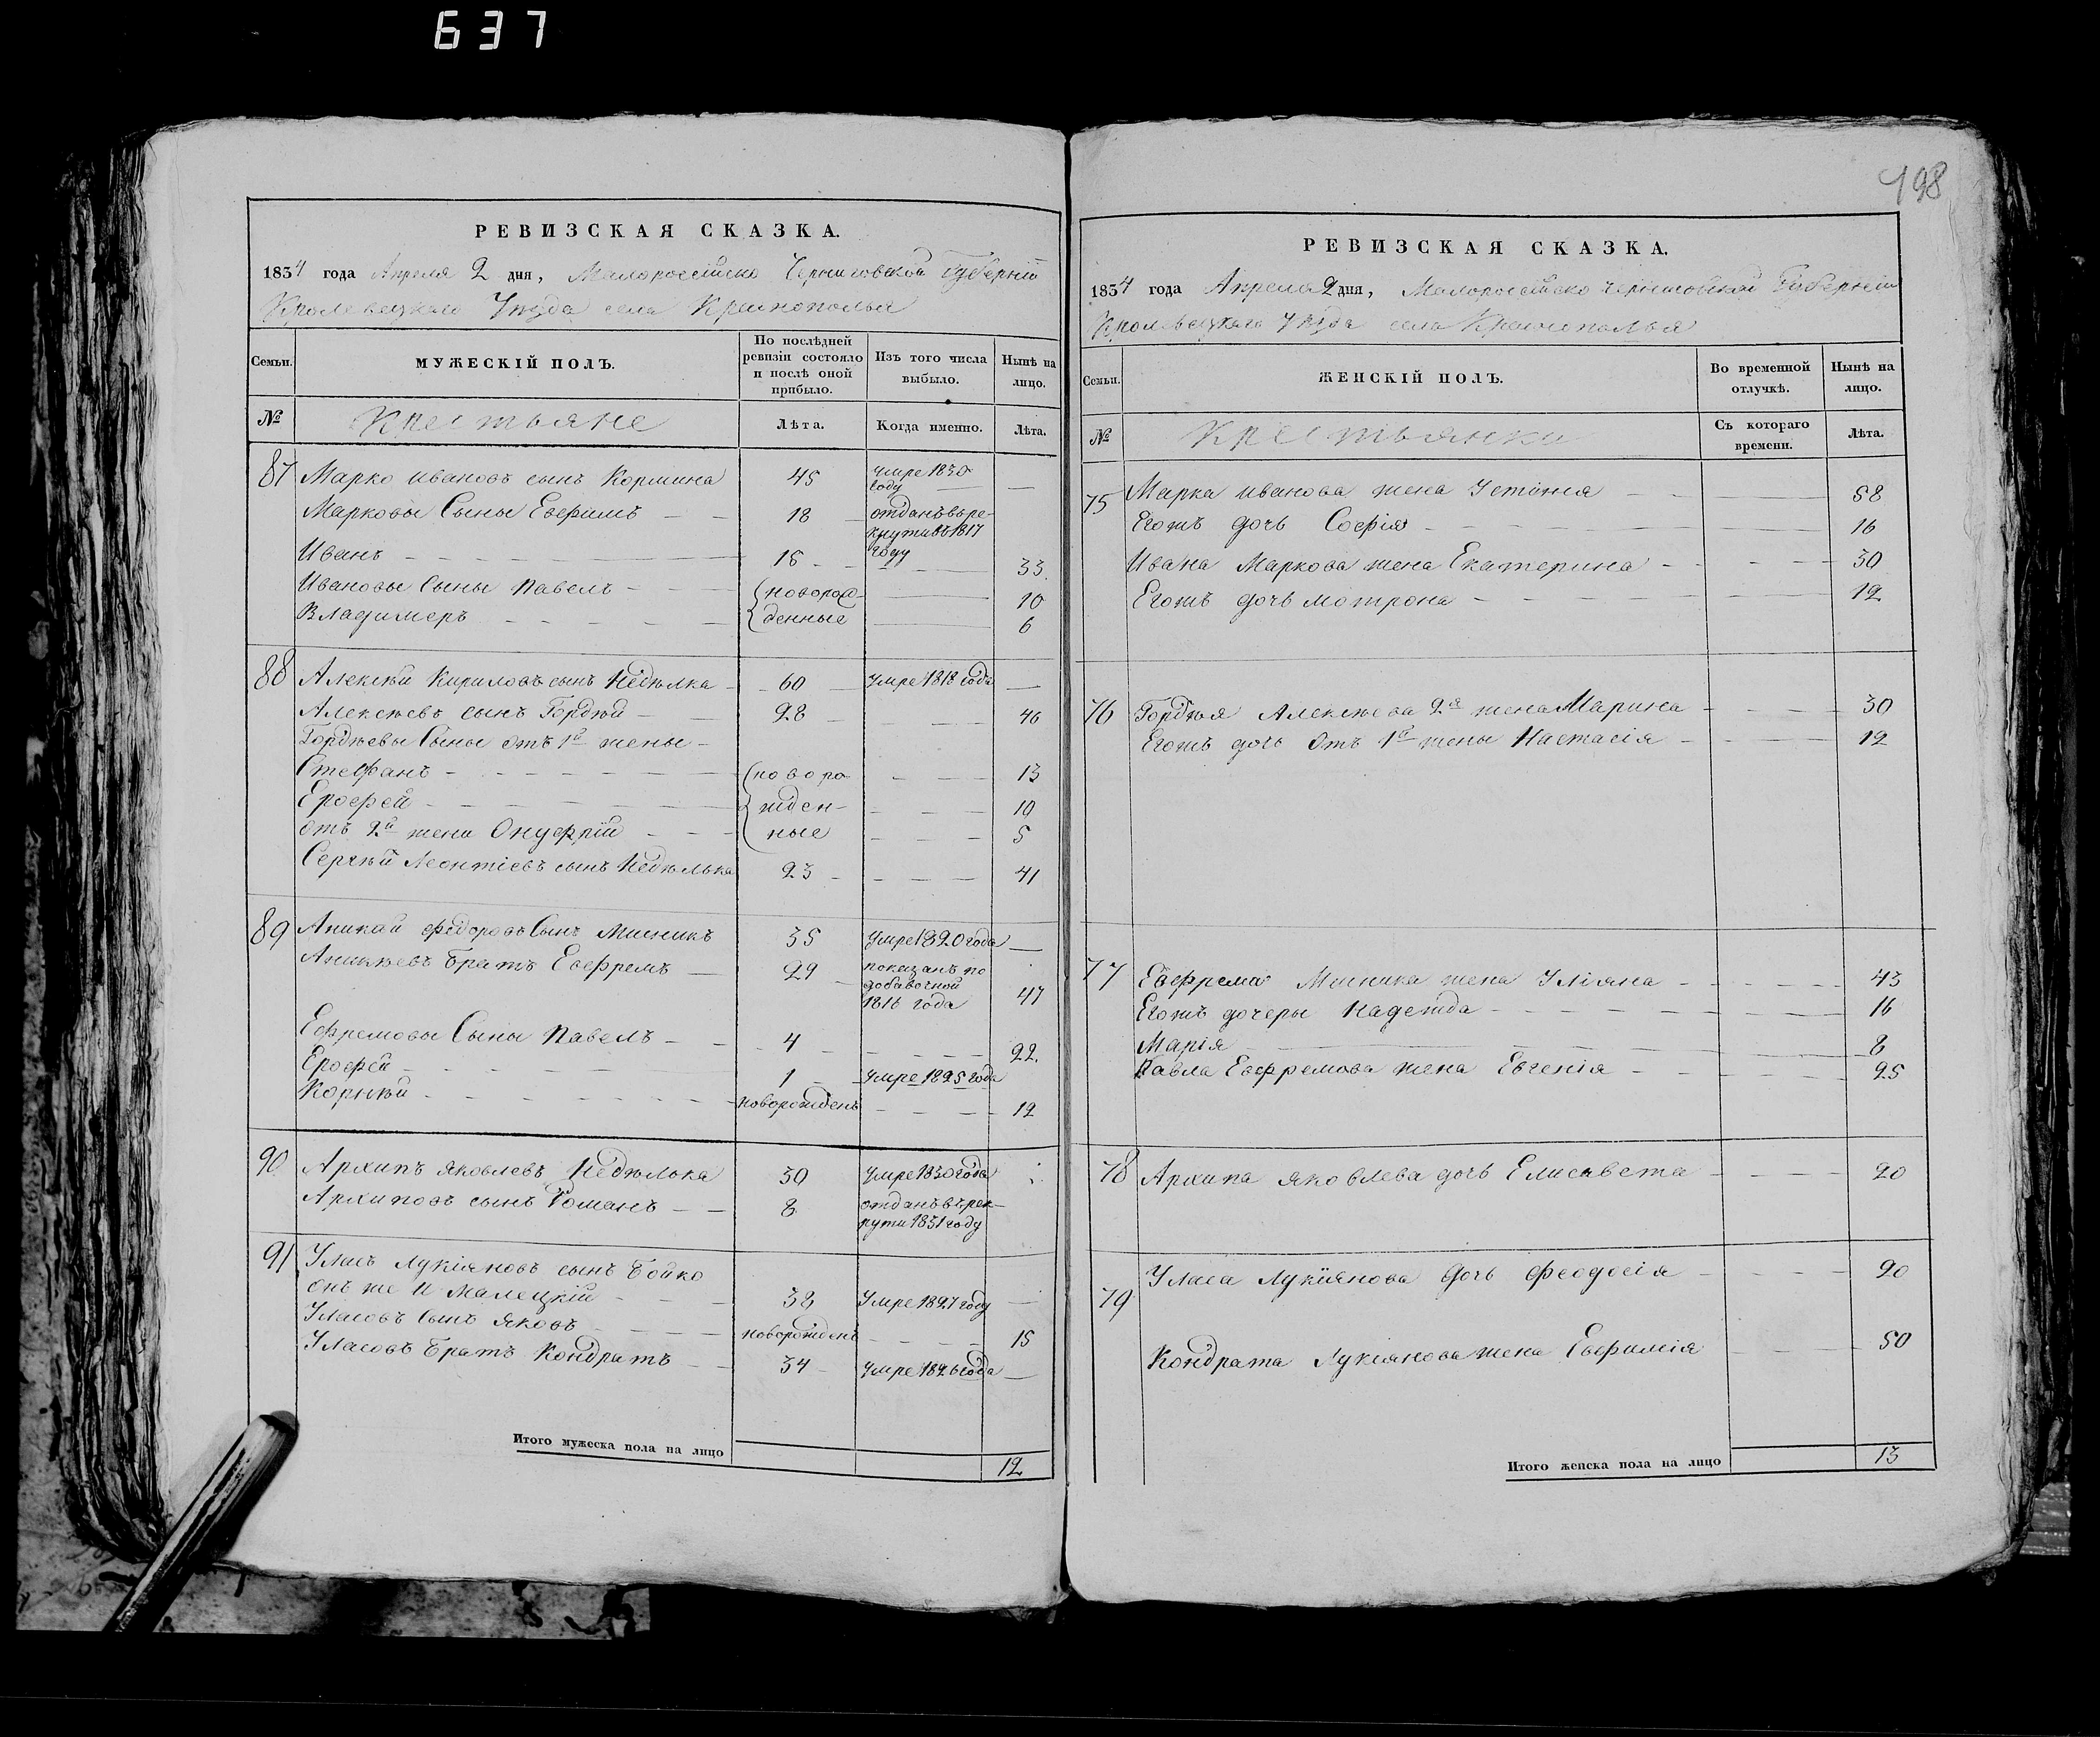 637
198
РЕВИЗСКАЯ СКАЗКА.
1834 года Апреля 2 дня, Малороссійско Черниговской Губерніи
Кролевецкаго Уезда села Краснополья
Семьи.
МУЖЕСКІЙ ПОЛЪ.
По послѣдней ревизіи состояло и послѣ оной прибыло.
Изъ того числа выбыло.
Нынѣ на лицо.
№ Крестьяне Лѣта. Когда именно. Лѣта.
87 Марко ивановъ сынъ Кормина 45 умре 1830 году —
Марковы Сыны Евфимъ 18 отданъ въ рекрути въ 1817 году
Иванъ 16 33
Ивановы Сыны Павелъ новорож- 10
Владимеръ денные 6
88 Алексѣй Кириловъ сынъ Недѣлка 60 умре 1818 года —
Алексѣевъ сынъ Гордѣй 28 46
Гордѣевы Сыны отъ 1й жены
Стефанъ новоро- 13
Ерофей жден- 10
отъ 2й жены Онуфрій ные 5
Сергѣй Леонтіевъ сынъ Недѣлька 23 41
89 Аникай федоровъ Сынъ Мисникъ 35 Умре 1820 года —
Аникѣевъ братъ Евфремъ 29 показанъ по добавочной 1816 года 47
Ефремовы Сыны Павелъ 4 22.
Ерофей 1 Умре 1825 года
Корнѣй новорожденъ 12
90 Архипъ яковлевъ Недѣлька 30 Умре 1830 года
Архиповъ сынъ Романъ 8 отданъ въ рекрути 1831 году
91 Уласъ Лукіяновъ сынъ Бойко
онъ же и Малецкій 38 Умре 1827 году —
Уласовъ Сынъ яковъ новорожденъ 15
Уласовъ братъ Кондратъ 34 Умре 1826 года —
Итого мужеска пола на лицо 12
РЕВИЗСКАЯ СКАЗКА.
1834 года Апреля 2 дня, Малороссійско Черниговской Губерніи
Кролевецкаго Уезда села Краснополья
Семьи.
ЖЕНСКІЙ ПОЛЪ.
Во временной отлучкѣ.
Нынѣ на лицо.
№ Крестьянки Съ котораго времени. Лѣта.
75 Марка иванова жена Устинія 58
Егожъ дочь Софія 16
Ивана Маркова жена Екатерина 30
Егожъ дочь мотрона 12
76 Гордѣя Алексѣева 2я жена Марина 30
Егожъ дочь отъ 1й жены Настасія 12
77 Евфрема Мисника жена Уліяна 43
Егожъ дочеры Надежда 16
Марія 8
Павла Евфремова жена Евгенія 25
78 Архипа яковлева дочь Елисавета 20
79 Уласа Лукіянова дочь Феодосія 20
Кондрата Лукіянова жена Евфимія 50
Итого женска пола на лицо 13